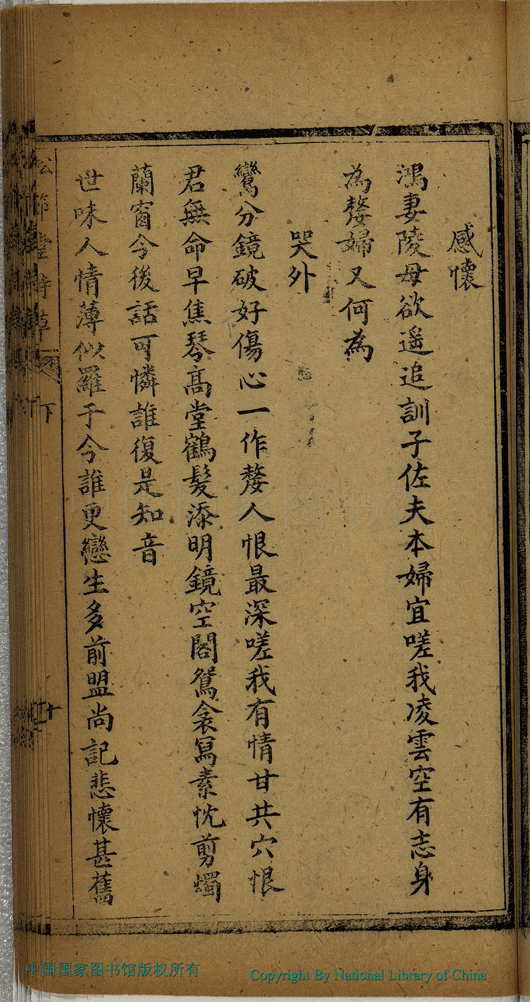 感懷
鴻妻陵母欲遥追訓子佐夫本婦宜嗟我凌雲空有志身
為嫠婦又何為
哭外
鸞分鏡破好傷心一作嫠人恨最深嗟我有情甘共穴恨
君無命早焦琴高堂鶴髮添明鏡空閣鴛衾冩素忱剪燭
蘭窗今後話可憐誰復是知音
世味人情薄似羅于今誰更戀生多前盟尚記悲懷甚舊
松節堂詩草
下
中国国家图书馆版权所有
Copyright By National Library of China